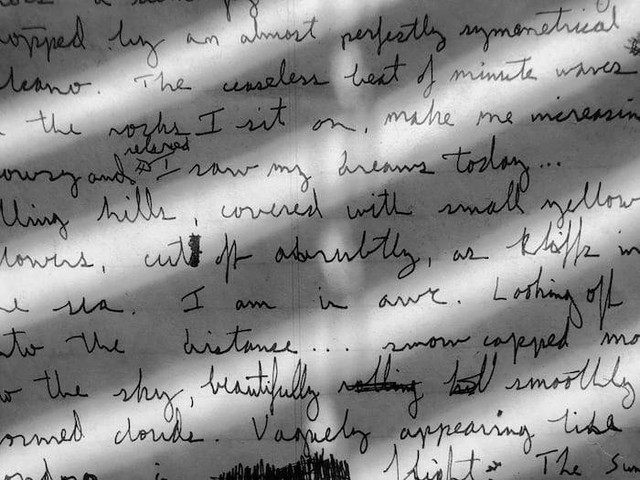 topped by an almost perfectly symmetrical
The ceaseless beat of minute waves
the rocks I sit on, make me increasin
relaxed
owsy and I saw my dreams today...
lling hills, covered with small yellow
lowers, cut off abrubtly, as kliffs in
he sea. I am in awe. Looking off
nto the distance.... snow capped mo
o the sky, beautifully rolling smoothly
ormed clouds. Vaguely appearing like
flight. The Sun